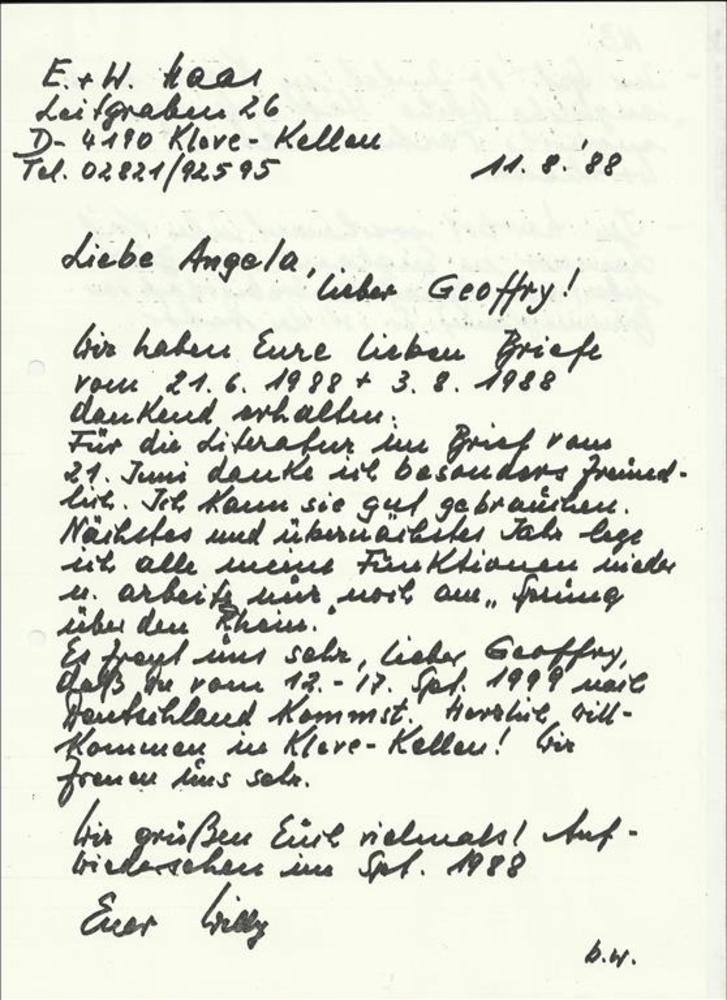 E. + W. Haas
Leitgraben 26
D- 4190 Kleve-Kellen
Tel. 02821/92595
11. 8. '88
Liebe Angela,
lieber Geoffry!
Wir haben Eure lieben Briefe
vom 21. 6. 1988 + 3. 8. 1988
dankend erhalten.
Für die Literatur im Brief vom
21. Juni danke ich besonders freund-
lich. Ich kann sie gut gebrauchen.
Nächstes und übernächstes Jahr lege
ich alle meine Funktionen nieder
u. arbeite nur noch am „Sprung
über den Rhein."
Es freut uns sehr, lieber Geoffry,
daß Du vom 12. - 17. Spt. 1999 nach
Deutschland kommst. Herzlich will-
kommen in Kleve-Kellen! Wir
freuen uns sehr.
Wir grüßen Euch vielmals! Auf-
wiedersehen im Spt. 1988
Euer Willy
b.w.